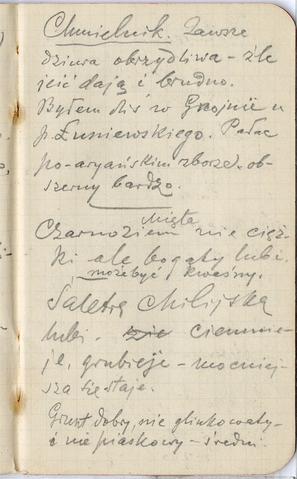 Chmielnik. Zawsze
dziura obrzydliwa – źle
jeść dają i brudno.
Byłem dziś w Grojnie u
p. Łuniewskiego. Pałac
po-aryańskim zborze – ob-
szerny bardzo.
Mięta
Czarnoziem nie cięż-
ki ale bogaty lubi.
może być kwaśny.
Saletrę Chilijską
lubi. ciemnie-
je, grubieje – mocniej-
sza się staje.
Grunt dobry, nie glinkowaty –
i nie piaskowy – średni.